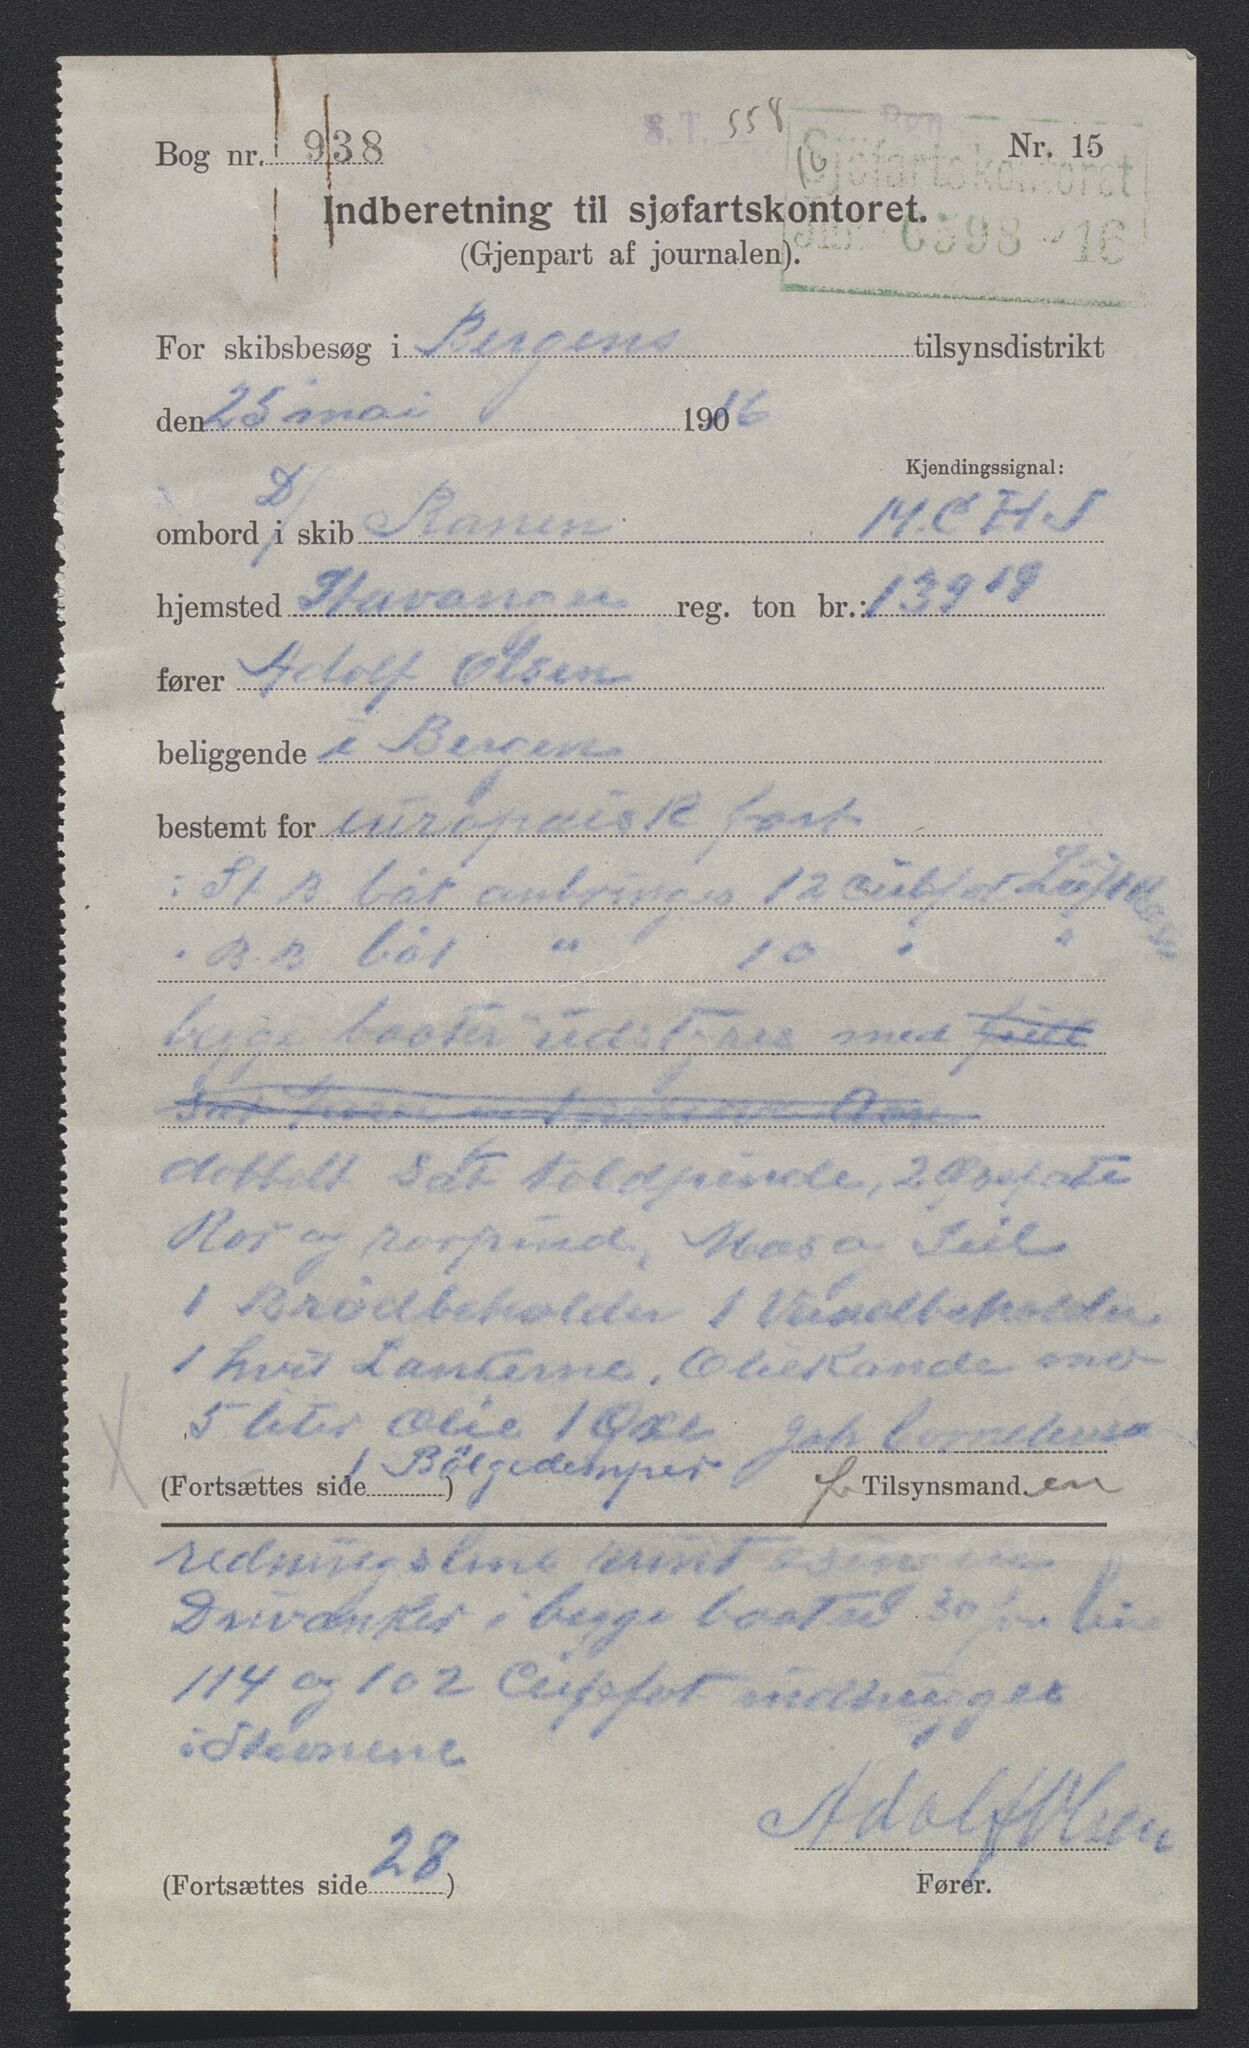 S.T. 558
Bog nr. 938
Nr. 15
Sjøfartskontoret
Jnr. 6598 - 16
Indberetning til sjøfartskontoret.
(Gjenpart af journalen).
For skibsbesøg i Bergens tilsynsdistrikt
den 25 mai 19016
Kjendingssignal:
ombord i skib D/ Ranen M.C.H.J
hjemsted Stavanger reg. ton br.: 139 19
fører Adolf Olsen
beliggende i Bergen
bestemt for europæisk fart
i St. B. båt anbringes 12 Cubfot Luftkas
" B.B båt " 10 " "
begge baater udstyres med
dobbelt sæt toldpinde, 2
Ror og rorpind, Mas og Seil
1 Brödbeholder 1 Vandbeholder
1 hvit Lanterne, Oliekande me
5 liter Olie 1 Øxe
1 Bölgedemper
Joh Cornelius
(Fortsættes side )
f. Tilsynsmanden
redningsline rundt
Drivanker i begge baater 30 line
114 og 102 Cubfot indhugges
i Stevnene
Adolf Olsen
(Fortsættes side 28 )
Fører.